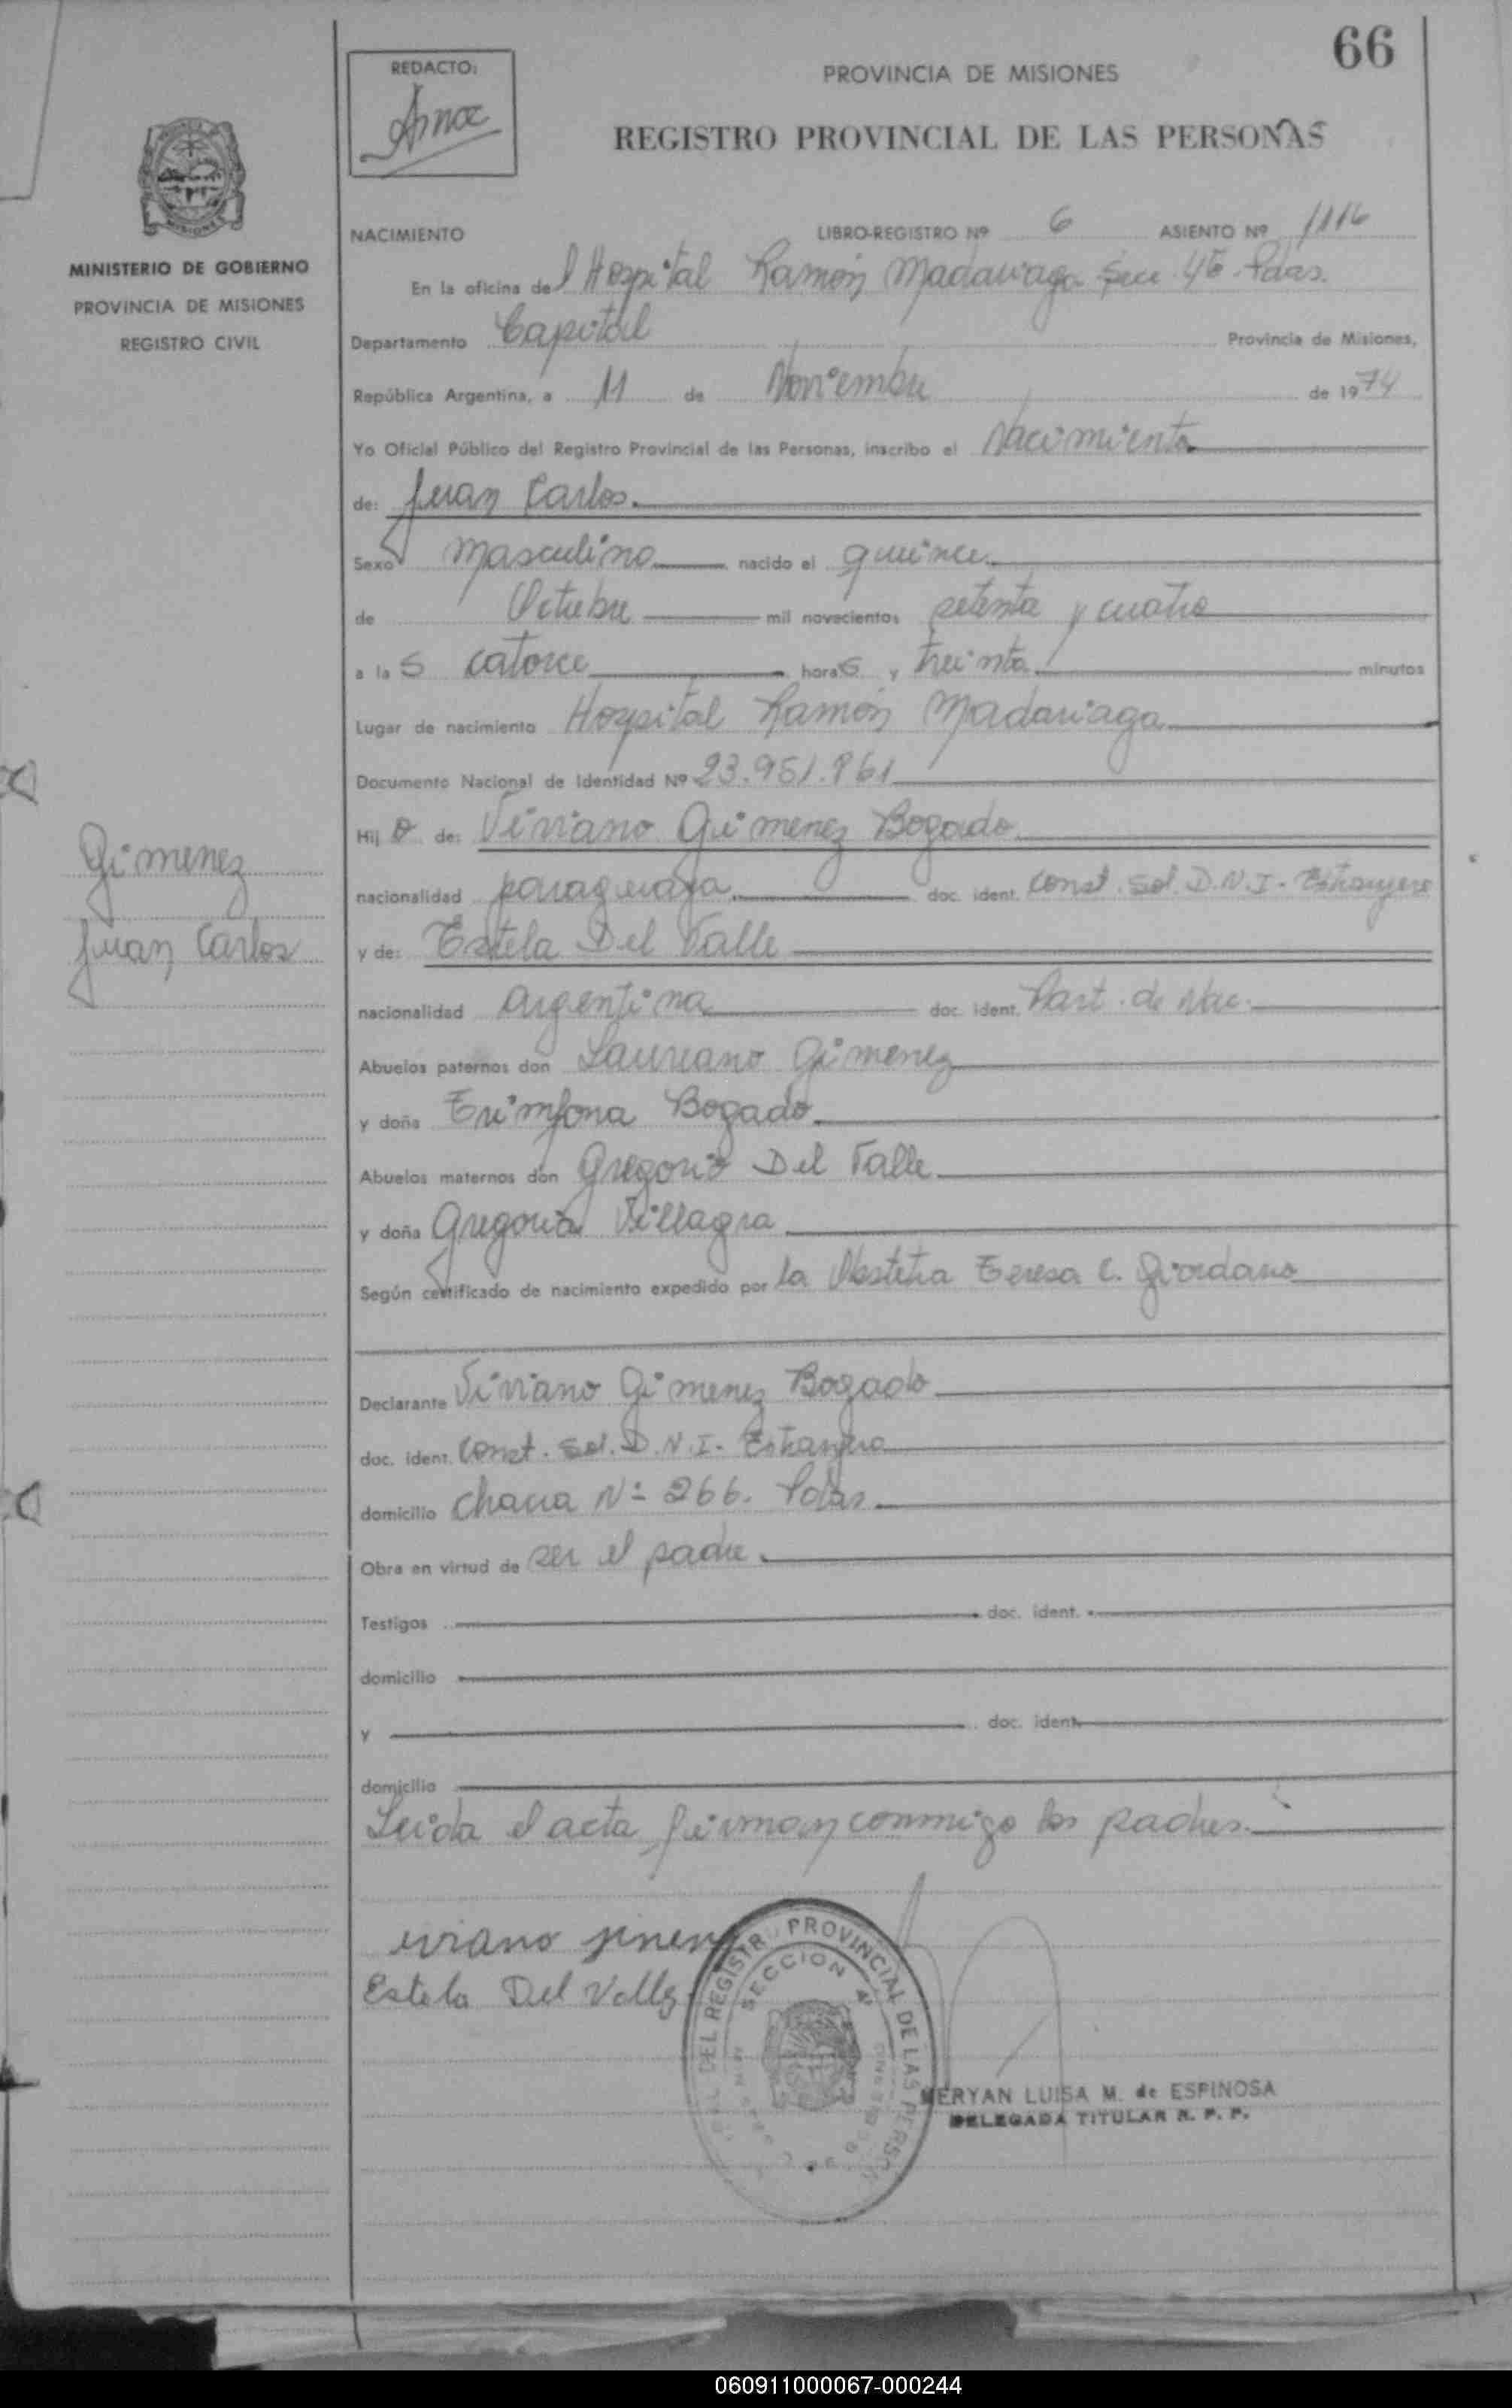 66
REDACTO:
PROVINCIA DE MISIONES
REGISTRO PROVINCIAL DE LAS PERSONAS
MISIONES
MINISTERIO DE GOBIERNO
PROVINCIA DE MISIONES
REGISTRO CIVIL
NACIMIENTO LIBRO-REGISTRO Nº 6 ASIENTO Nº 1116
En la oficina del Hospital Ramón Madariaga Secc 4ta. Pdas.
Departamento Capital Provincia de Misiones,
República Argentina, a 11 de Noviembre de 1974
Yo Oficial Público del Registro Provincial de las Personas, inscribo el Nacimiento
de: Juan Carlos.
Sexo masculino nacido el quince
de Octubre mil novecientos setenta y cuatro
a las catorce horas y treinta minutos
Lugar de nacimiento Hospital Ramón Madariaga
Documento Nacional de Identidad Nº 23.951.861
Hijo de: Viviano Gimenez Bogado
nacionalidad paraguaya doc. ident. const. sol. D.N.I. - Extranjero
y de: Estela Del Valle
nacionalidad argentina doc. ident. Part. de Nac.
Abuelos paternos don Laureano Gimenez
y doña Bogado
Abuelos maternos don Gregorio Del Valle
y doña Gregoria Villagra
Según certificado de nacimiento expedido por la Obstetra Teresa C. Giordano
Declarante Viviano Gimenez Bogado
doc. ident. const. sol. D.N.I. - Extranjero
domicilio chacra Nº 266. Pdas.
Obra en virtud de ser el padre.
Testigos doc. ident.
domicilio
y doc. ident.
domicilio
Leida el acta, firman conmigo los padres.
Gimenez
Juan Carlos
Estela Del Valle
DEL REGISTRO PROVINCIAL DE LAS
SECCION 4ª
MERYAN LUISA M. de ESPINOSA
DELEGADA TITULAR R. P. P.
060911000067-000244